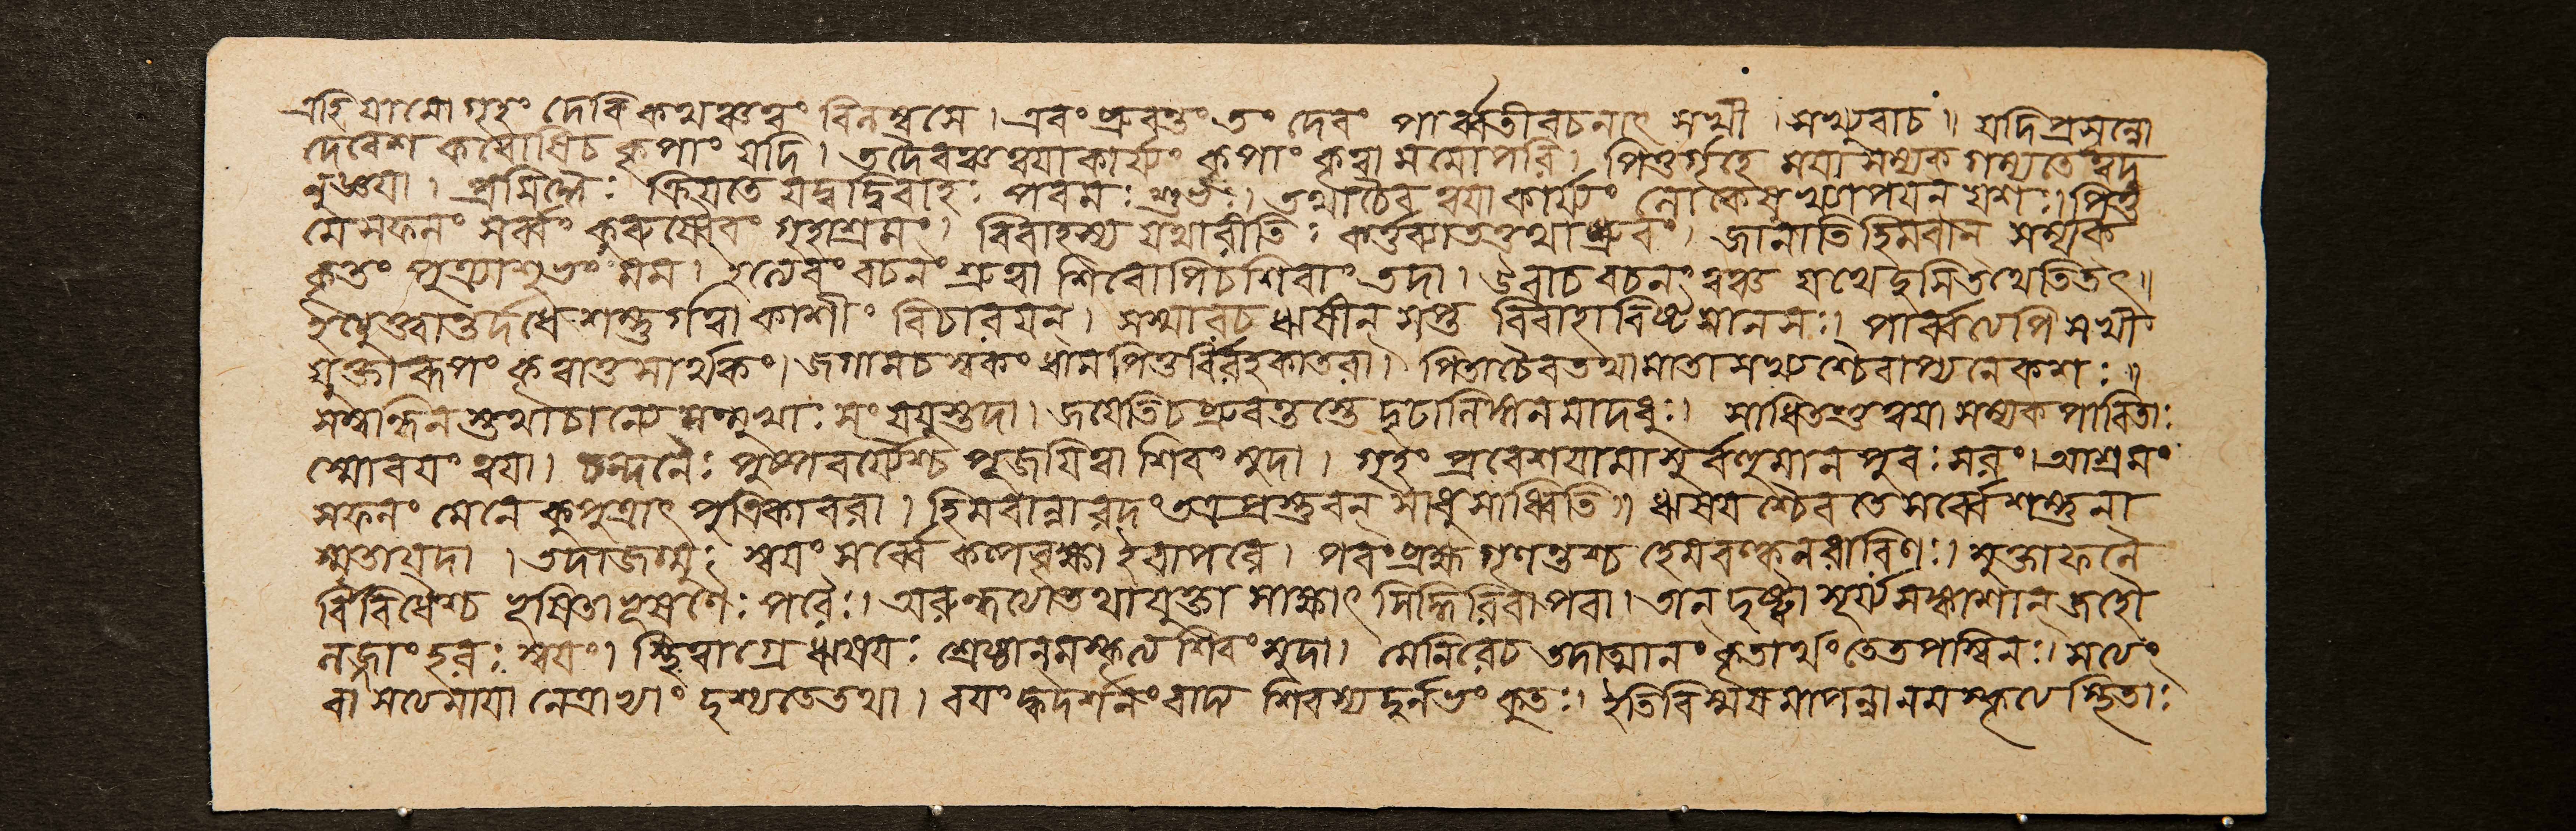 এহি যামো গৃহং দেবি কথঞ্চত্বং বিলম্বসে । এবং ব্রুবন্তং তং দেবং পার্ব্বতীবচনাৎ সখী । সখ্যুবাচ ॥ যদি প্রসন্নো
দেবেশ করোষিচ কৃপাং যদি । তদৈবঞ্চ ত্বয়াকার্য্যং কৃপাং কৃত্বা মমোপরি । পিতুর্গৃহে ময়া সম্যক গম্যতে ত্বদ
নুজ্ঞয়া । প্রসিদ্ধৈঃ ক্রিয়তে যদ্বদ্বিবাহঃ পরমঃ শুভঃ । তথাচৈব ত্বয়া কার্য্যং লোকেষু খ্যাপয়ন যশঃ । পিতু
র্মে সফলং সর্ব্বং কুরুষ্বৈবং গৃহাশ্রমং । বিবাহস্য যথারীতিঃ কর্ত্তব্যাতত্তথাধ্রুবং । জানাতি হিমবান সম্যক
কৃতং পুত্র্যাশুভং মম । ইত্যেবং বচনং শ্রুত্বা শিবোপিচশিবাং তদা । উবাচ বচনং যঞ্চ যথেদুমিতথেতিতৎ ॥
ইত্যুক্ত্বান্তর্দধে শম্ভুর্গত্বা কাশীং বিচারয়ন । সস্মারচ ঋষীন সপ্ত বিবাহাবিষ্টমানসঃ । পার্ব্বত্যপি সখী
যুক্তারূপং কৃত্বাতুসার্থকং । জগামচ স্বকং ধাম পিতুর্বিরহকাতরা । পিতাচৈবতথামাতা সখ্যশ্চৈবাপ্যনেকশঃ ॥
সম্বন্ধিনস্তথাচান্যে সন্মুখাঃ সংযযুস্তদা । জয়েতিচব্রুবন্তস্তে দৃঢ়ালিঙ্গনমাদধুঃ । সাধিতস্তুত্বয়া সম্যক পাবিতাঃ
স্মোবয়ং ত্বয়া । চন্দনৈঃ পুষ্পবর্য্যৈশ্চ পূজয়িত্বা শিবং মুদা । গৃহং প্রবেশয়ামাসুর্বহুমানপুরঃসরং । আশ্রমং
সফলং মেনে কুপুত্রাৎ পুত্রিকাবরা । হিমবান্নারদং তত্র প্রস্তুবন সাধুসাধ্বিতি ॥ ঋষয়শ্চৈব তে সর্ব্বে শম্ভুনা
স্মৃতা যদা । তদাজগ্মুঃ স্বয়ং সর্ব্বে কল্পবৃক্ষা ইবাপরে । পরং ব্রহ্ম গৃণন্তশ্চ হেমবল্কলধারিণঃ । মুক্তাফলৈ
র্বিবিধৈশ্চ ভূষিতাভূষণৈঃ পরৈঃ । অরুন্ধত্যাতথাযুক্তা সাক্ষাৎ সিদ্ধিরিবাপরা । তান দৃষ্ট্বা সূর্য্যসঙ্কাশান জহৌ
লজ্জাং হরঃ স্বয়ং । স্থিত্বাগ্রে ঋষয়ঃ শ্রেষ্ঠা নমস্কৃত্য শিবং মুদা । মেনিরেচ তদাত্মানং কৃতার্থং তেতপস্বিনঃ । সত্যং
বা সত্যেমায়া নেত্রাভ্যাং দৃশ্যতেতথা । বয়ং ক্বদর্শনং বাদ্য শিবস্য দুর্লভং কুতঃ । ইতিবিস্ময়মাপন্না নমস্কৃত্য স্থিতাঃ